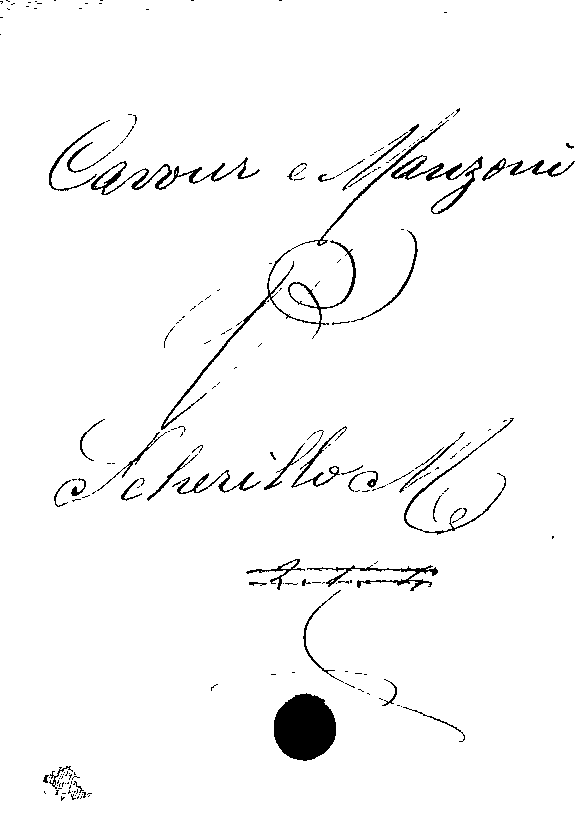 Cavour e Manzoni
Scherillo M